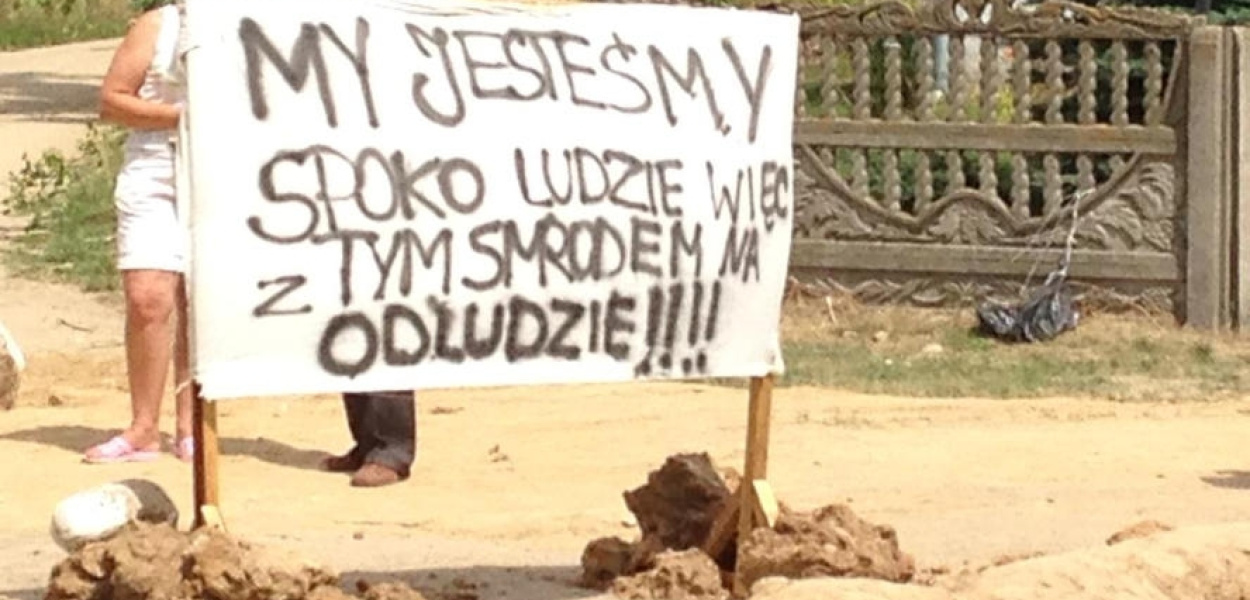 MY JESTEŚMY
SPOKO LUDZIE WIĘC
Z TYM SMRODEM NA
ODLUDZIE!!!!